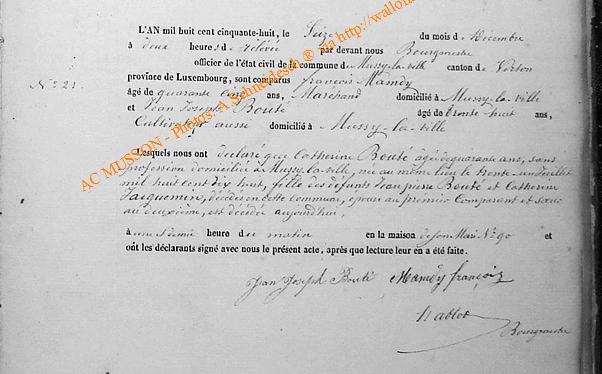 L'AN mil huit cent cinquante-huit, le Seize du mois de Décembre
à deux heures de rélévée par devant nous Bourgmestre
officier de l'état civil de la commune de Mussy-la-ville canton de Virton
N.° 21. province de Luxembourg, sont comparus françois Mamdy
âgé de quarante cinq ans, Maréchand domicilié à Mussy-la-Ville
et Jean Joseph Bouté âgé de trente huit ans,
Cultivateur aussi domicilié à Mussy-la-ville
Lesquels nous ont déclaré que Catherine Bouté âgé de quarante ans, sans
profession domiciliée de Mussy-la-ville, née au même lieu le trente-un Juillet
mil huit cent dix huit, fille des défunts Jean pierre Bouté et Catherine
Jacquemin, décédés en cette Commune, épouse au premier Comparant et sœur
au deuxième, est décédée aujourd'hui,
à une & demie heure du matin en la maison de son Mari N.° 90 et
ont les déclarants signé avec nous le présent acte, après que lecture leur en a été faite.
Jean Joseph Bouté Mamdy françois
Nablot
Bourgmestre
AC MUSSON - Photos: A. Schnaidesch ® via http://wallonia